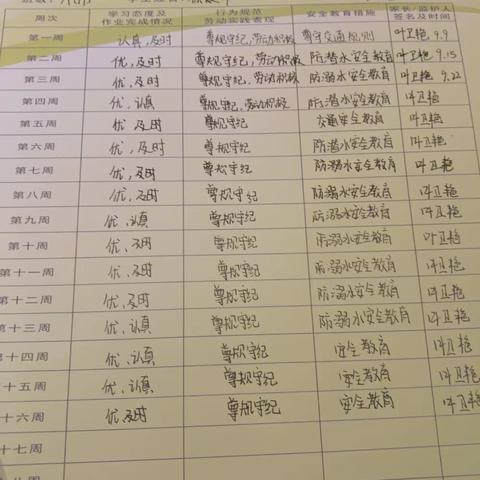 周次 学习态度及作业完成情况 行为规范劳动实践表现 安全教育措施 家长/监护人签名及时间
第一周 认真,及时 尊规守纪,劳动积极 遵守交通规则 叶卫艳 9.9
第二周 优,及时 尊规守纪,劳动积极 防潜水安全教育 叶卫艳 9.15
第三周 优,及时 尊规守纪,劳动积极 防溺水安全教育 叶卫艳 9.22
第四周 优,认真 尊规守纪,劳动积极 防溺水安全教育 叶卫艳
第五周 优,及时 尊规守纪 交通安全教育 叶卫艳
第六周 优,及时 尊规守纪 防潜水安全教育 叶卫艳
第七周 优,及时 尊规守纪 防溺水安全教育 叶卫艳
第八周 优,及时 尊规守纪 防溺水安全教育 叶卫艳
第九周 优、认真 尊规守纪 防溺水安全教育 叶卫艳
第十周 优、及时 尊规守纪 防溺水安全教育 叶卫艳
第十一周 优、及时 尊规守纪 防溺水安全教育 叶卫艳
第十二周 优、及时 尊规守纪 防溺水安全教育 叶卫艳
第十三周 优、认真 尊规守纪 防溺水安全教育 叶卫艳
十四周 优、认真 尊规守纪 安全教育 叶卫艳
十五周 优、认真 尊规守纪 安全教育 叶卫艳
十六周 优,及时 尊规守纪 安全教育 叶卫艳
十七周